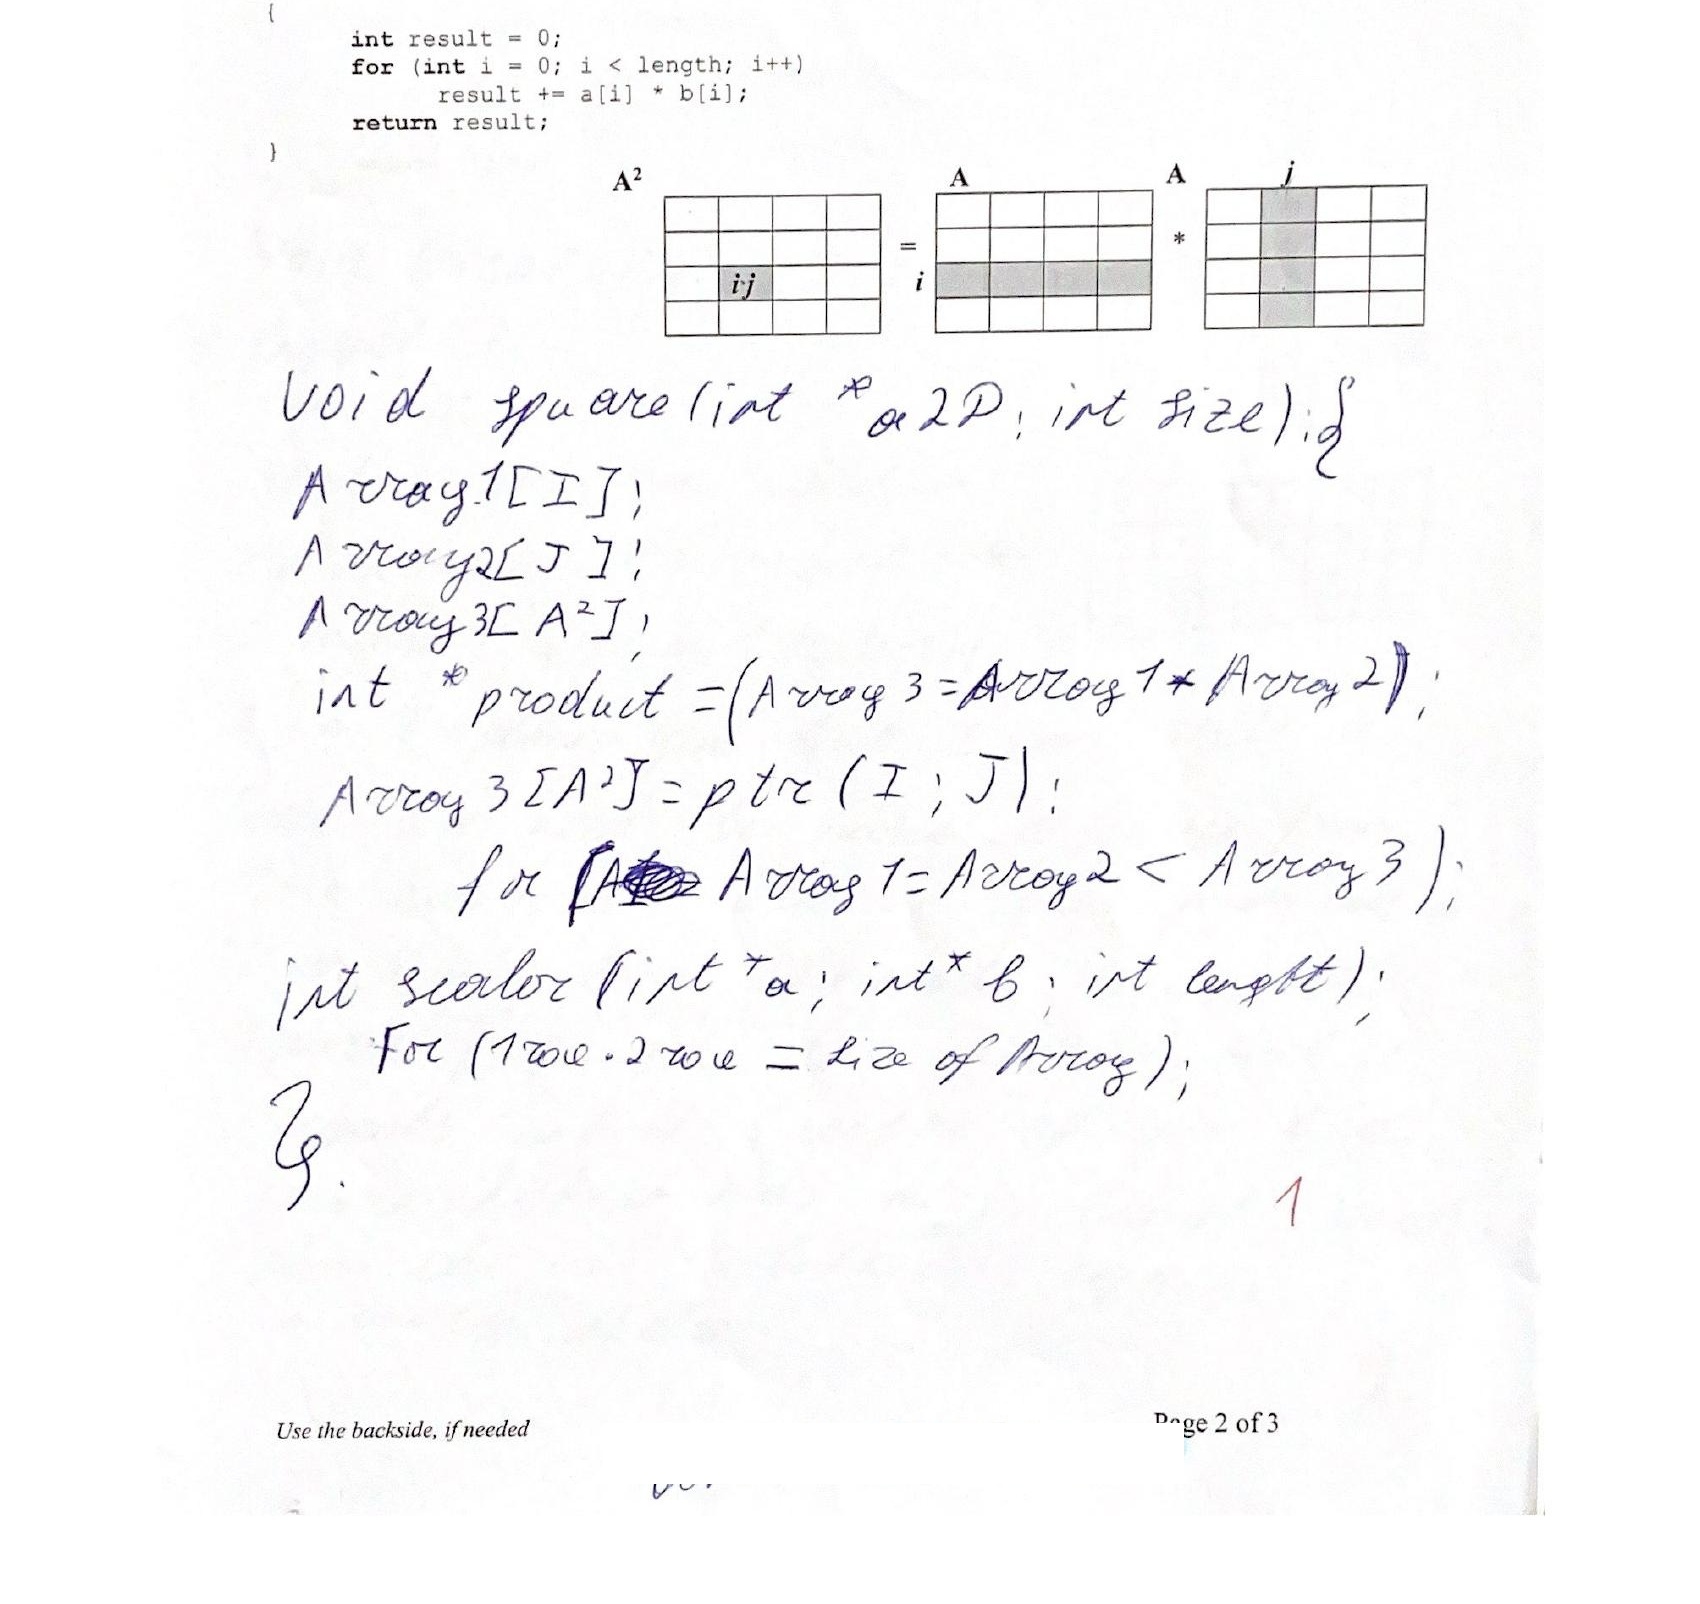 {
int result = 0;
for (int i = 0; i < length; i++)
result += a[i] * b[i];
return result;
}
A² A A j
= i *
i·j
void square (int *a2D; int size);{
Array1[I];
Array2[J];
Array3[A²];
int *product =(Array3=Array1*Array2);
Array3[A²]=ptr(I;J);
for (Array1=Array2<Array3);
int scalar (int *a; int* b; int lenght);
For (1row.2row = size of Array);
}.
1
Use the backside, if needed
Page 2 of 3